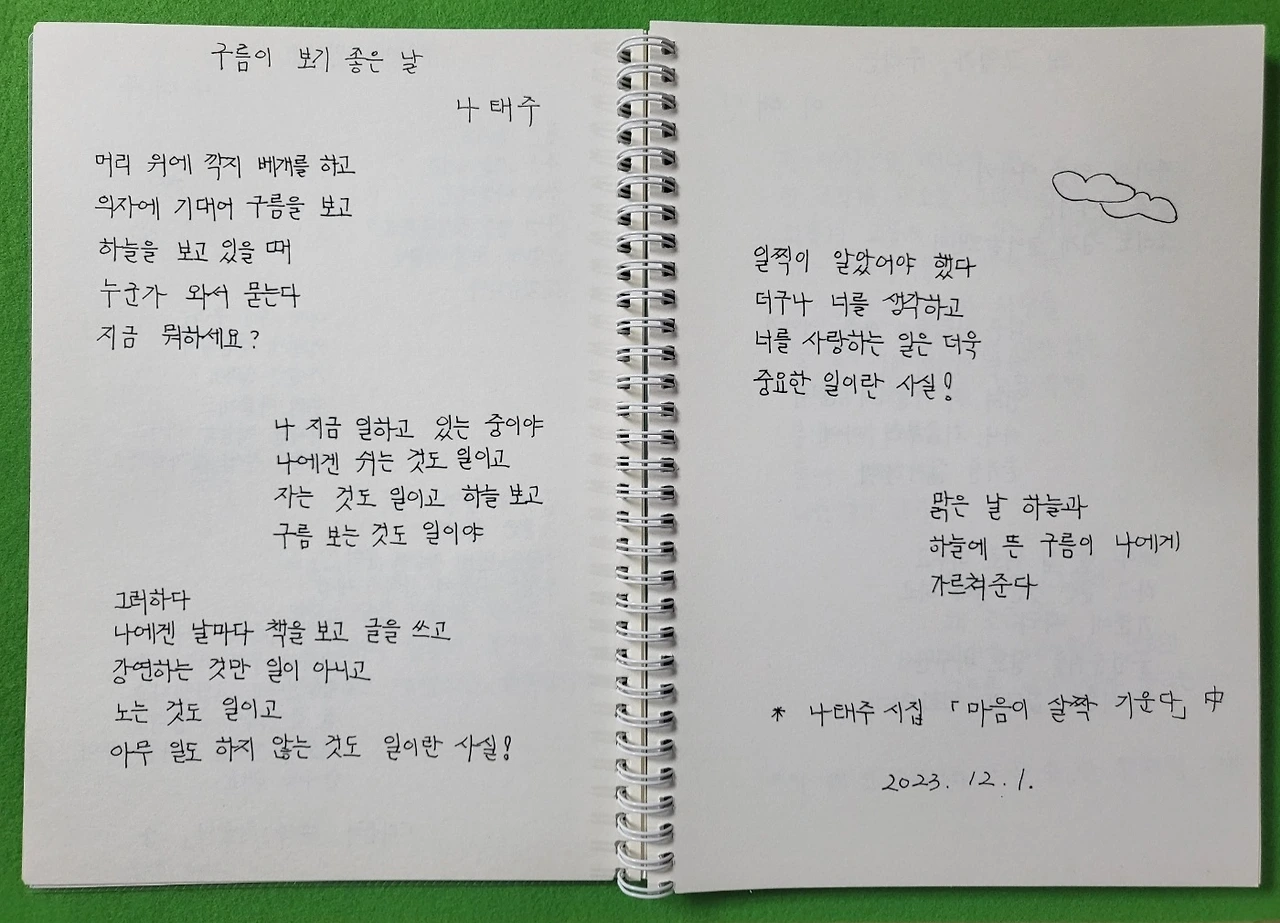 구름이 보기 좋은 날
나태주
머리 위에 깍지 베개를 하고
의자에 기대어 구름을 보고
하늘을 보고 있을 때
누군가 와서 묻는다
지금 뭐하세요?
나 지금 일하고 있는 중이야
나에겐 쉬는 것도 일이고
자는 것도 일이고 하늘 보고
구름 보는 것도 일이야
그러하다
나에겐 날마다 책을 보고 글을 쓰고
강연하는 것만 일이 아니고
노는 것도 일이고
아무 일도 하지 않는 것도 일이란 사실!
일찍이 알았어야 했다
더구나 너를 생각하고
너를 사랑하는 일은 더욱
중요한 일이란 사실!
맑은 날 하늘과
하늘에 뜬 구름이 나에게
가르쳐준다
* 나태주 시집 「마음이 살짝 기운다」 中
2023. 12. 1.